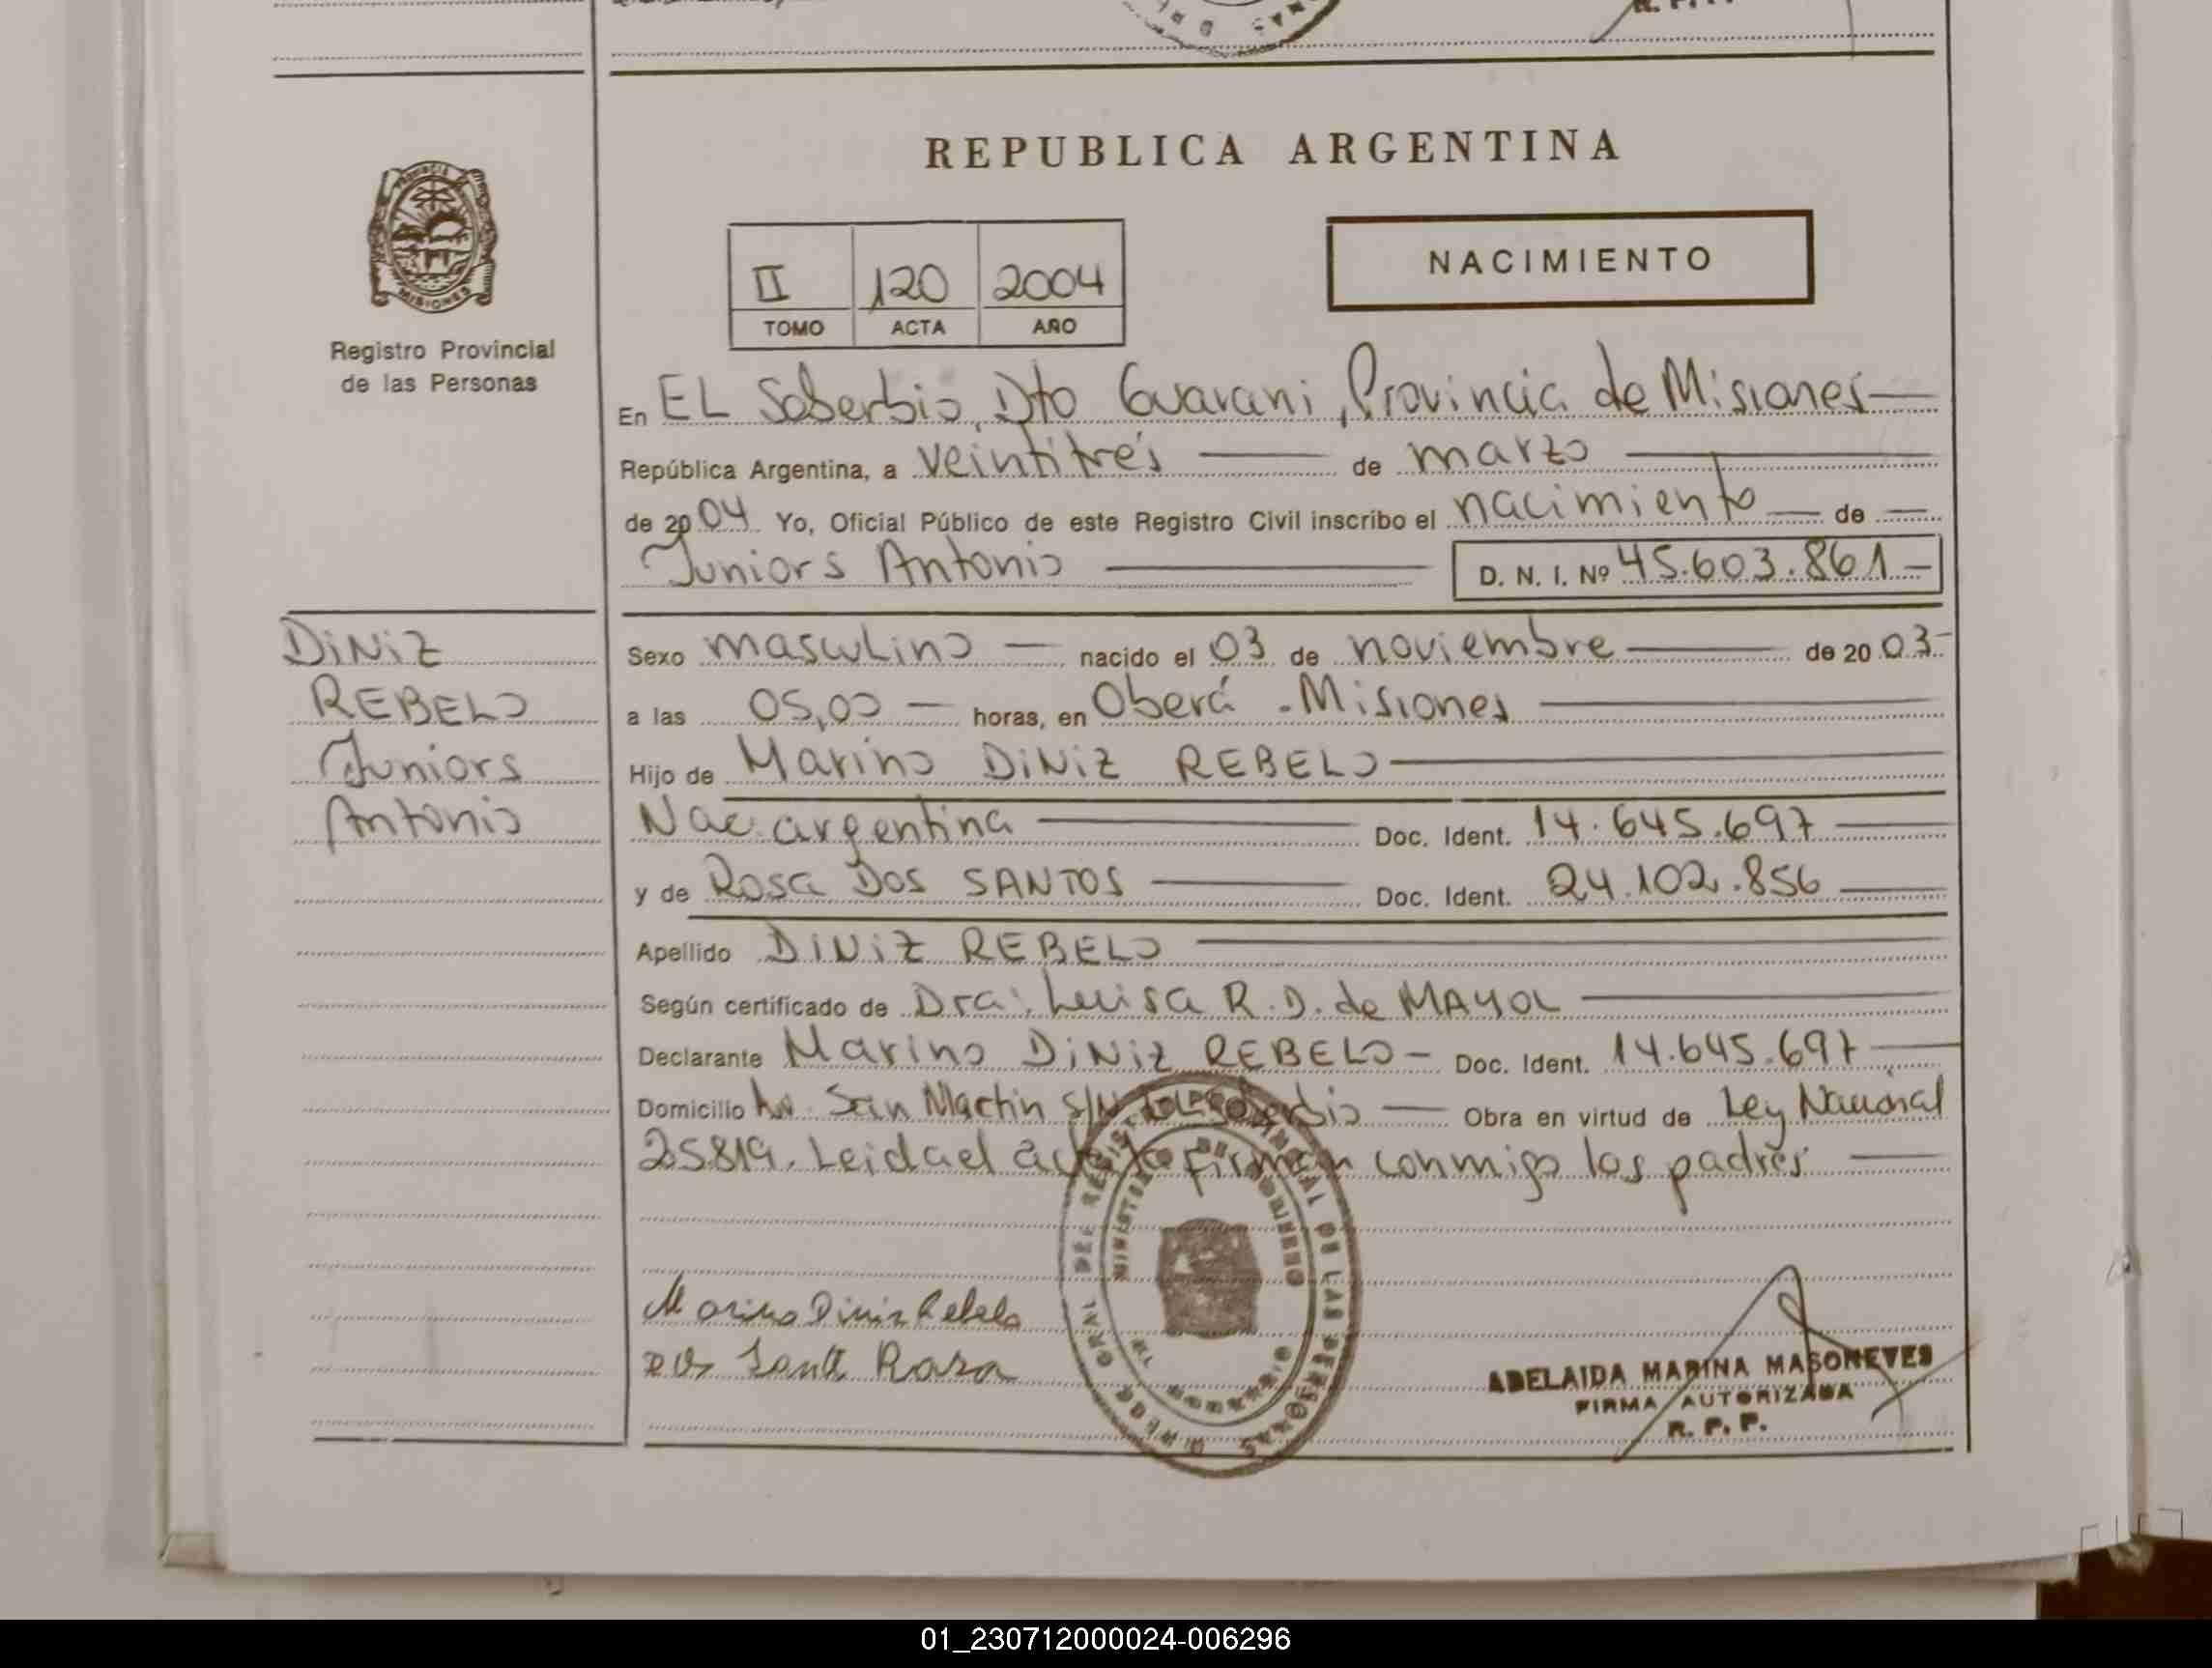 REPUBLICA ARGENTINA
PROVINCIA DE
MISIONES
Registro Provincial
de las Personas
II 120 2004
TOMO ACTA AÑO
NACIMIENTO
En EL Soberbio, Dto Guarani, Provincia de Misiones
República Argentina, a veintitrés de marzo
de 2004 Yo, Oficial Público de este Registro Civil inscribo el nacimiento de
Juniors Antonio D. N. I. Nº 45.603.861
DiNiZ
REBELO
Juniors
Antonio
Sexo masculino nacido el 03 de noviembre de 2003
a las 05,00 horas, en Oberá - Misiones
Hijo de Marino DiNiZ REBELO
Nac. argentina Doc. Ident. 14.645.697
y de Rosa Dos SANTOS Doc. Ident. 24.102.856
Apellido DiNiZ REBELO
Según certificado de Dra: Luisa R. D. de MAYOL
Declarante Marino DiNiZ REBELO Doc. Ident. 14.645.697
Domicilio Av. San Martin s/N El Soberbio Obra en virtud de Ley Nacional
25819. Leida el acta la firman conmigo los padres
Marino Diniz Rebelo
Dos Rosa
ADELAIDA MARINA MASONEVES
FIRMA AUTORIZADA
R. P. P.
DEL REGISTRO PROVINCIAL DE LAS PERSONAS
MINISTERIO DE GOBIERNO
01_230712000024-006296